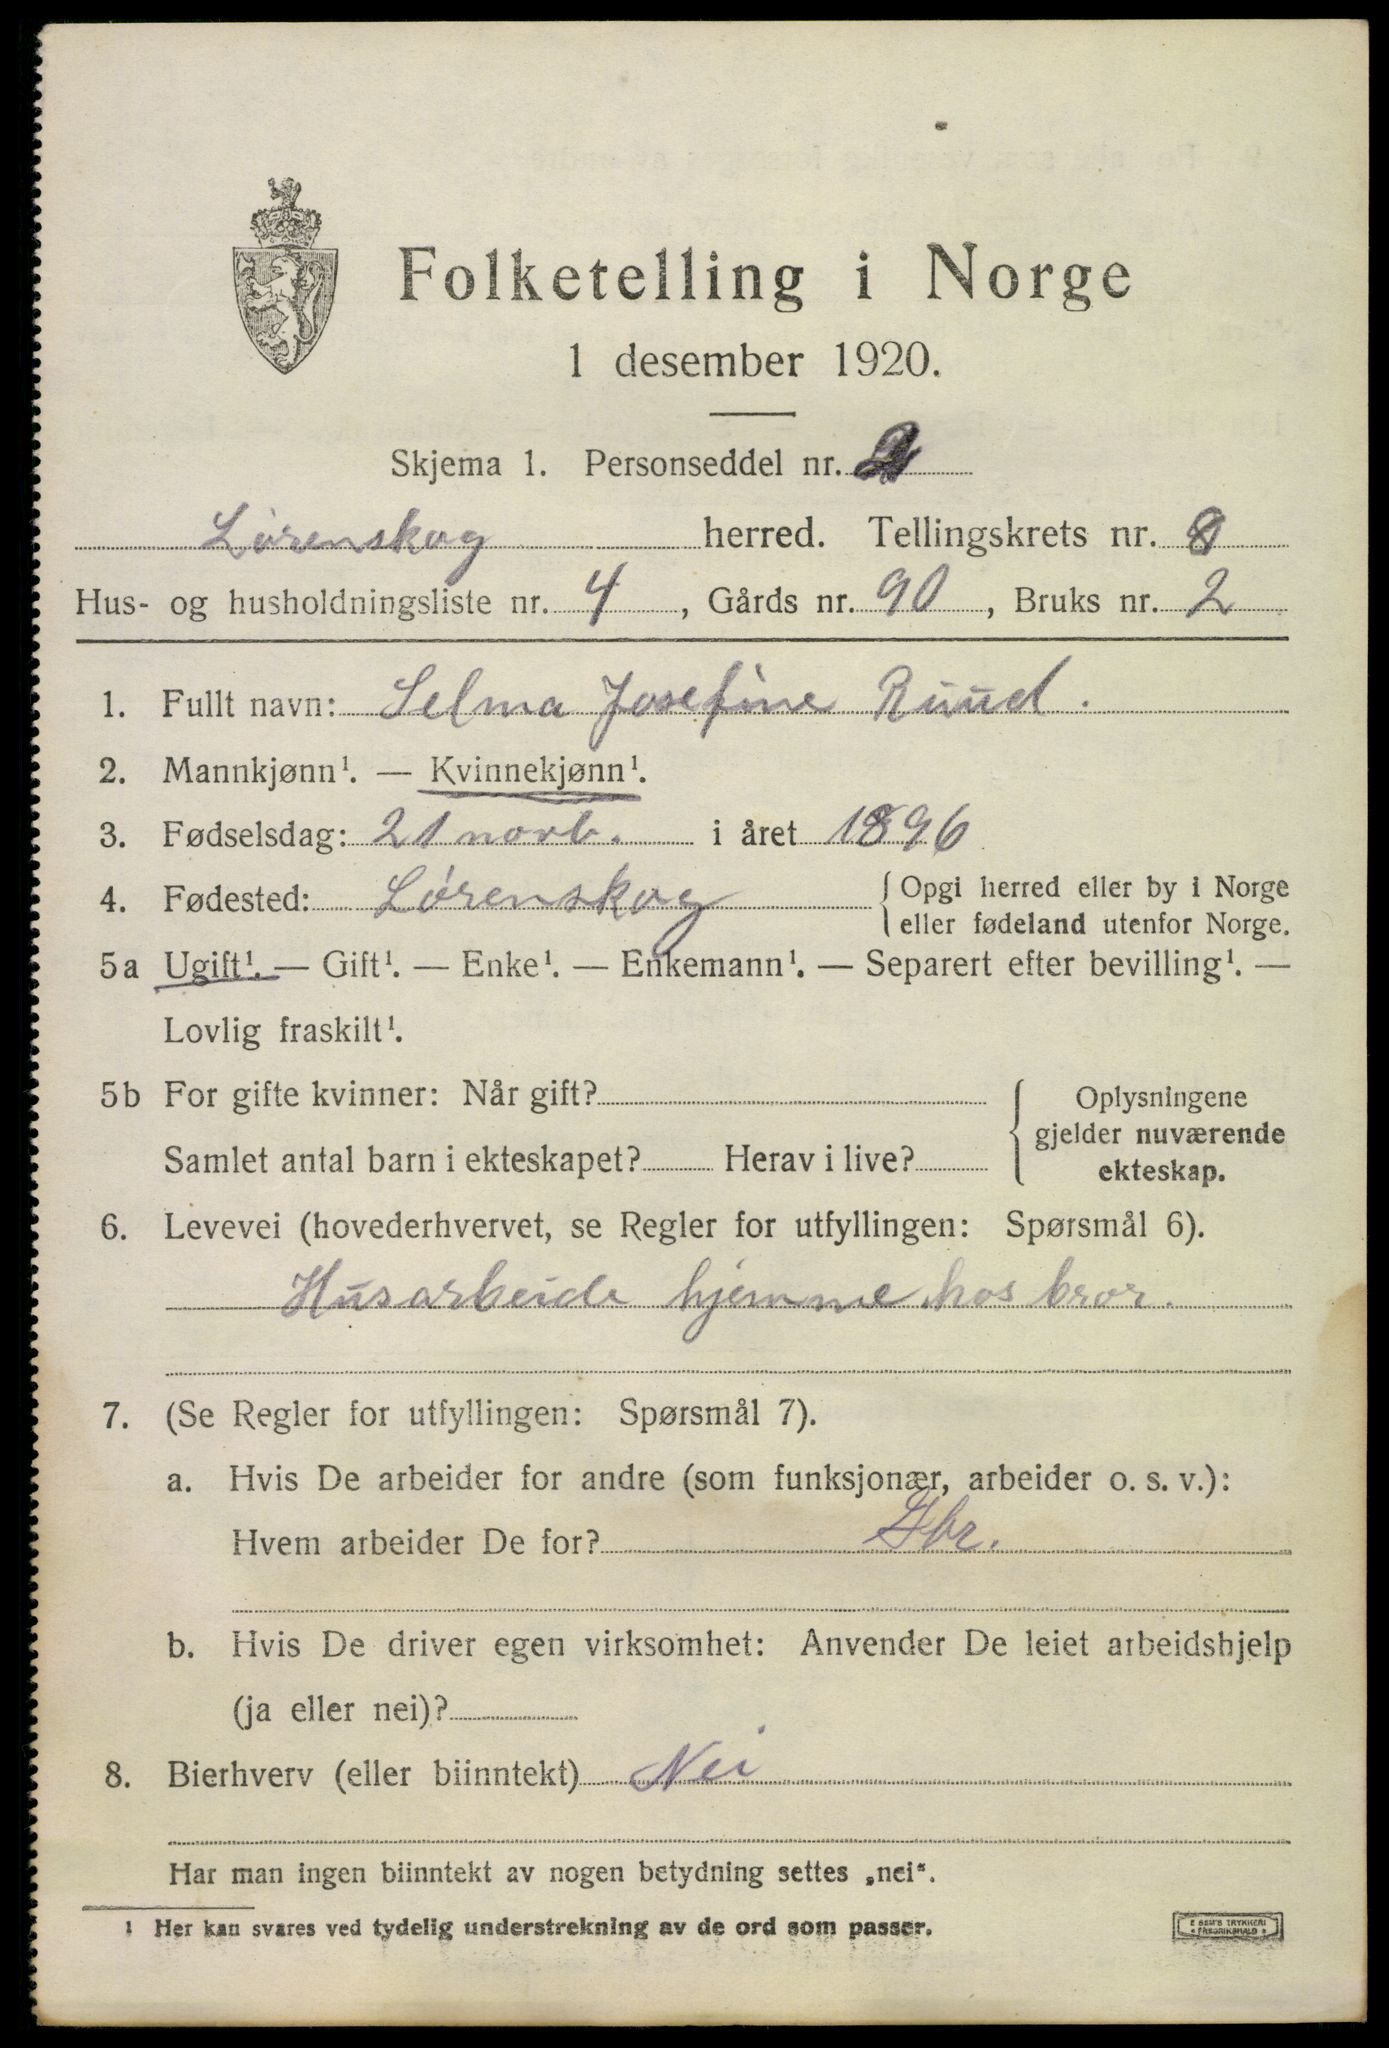 Folketelling i Norge
1 desember 1920.
Skjema 1. Personseddel nr. 2
Lørenskog herred. Tellingskrets nr. 8
Hus- og husholdningsliste nr. 4, Gårds nr. 90, Bruks nr. 2
1. Fullt navn: Selma Josefine Ruud.
2. Mannkjønn¹. — Kvinnekjønn¹.
3. Fødselsdag: 21 novb. i året 1896
4. Fødested: Lørenskog { Opgi herred eller by i Norge
eller fødeland utenfor Norge.
5a Ugift¹. — Gift¹. — Enke¹. — Enkemann¹. — Separert efter bevilling¹. —
Lovlig fraskilt¹.
5b For gifte kvinner: Når gift? { Oplysningene
gjelder nuværende
Samlet antal barn i ekteskapet? Herav i live?
ekteskap.
6. Levevei (hovederhvervet, se Regler for utfyllingen: Spørsmål 6).
Husarbeide hjemme hos bror.
7. (Se Regler for utfyllingen: Spørsmål 7).
a. Hvis De arbeider for andre (som funksjonær, arbeider o. s. v.):
Hvem arbeider De for?
b. Hvis De driver egen virksomhet: Anvender De leiet arbeidshjelp
(ja eller nei)?
8. Bierhverv (eller biinntekt) Nei
Har man ingen biinntekt av nogen betydning settes „nei“.
¹ Her kan svares ved tydelig understrekning av de ord som passer.
E SEM'S TRYKKERI
FREDRIKSHALD